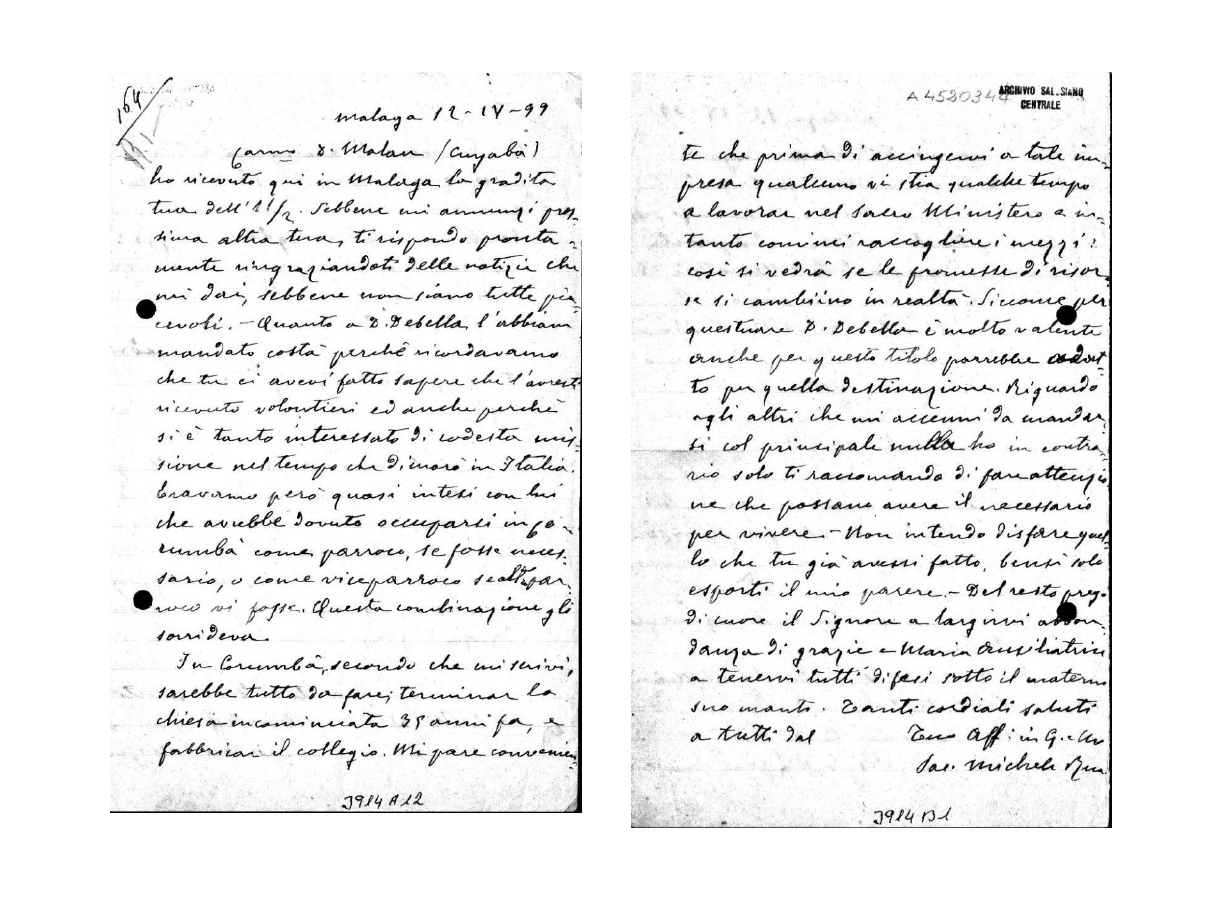 164
Malaga 12-IV-99
Carmo D. Malan (Cuyabà)
ho ricevuto qui in Malaga la gradita
tua dell'11/2. Sebbene mi annunzi pros-
sima altra tua, ti rispondo pronta-
mente ringraziandoti delle notizie che
mi dai, sebbene non siano tutte pia-
cevoli. - Quanto a D. Debella l'abbiam
mandato costà perchè ricordavamo
che tu ci avevi fatto sapere che l'avresti
ricevuto volontieri ed anche perchè
si è tanto interessato di codesta mis-
sione nel tempo che dimorò in Italia.
Eravamo però quasi intesi con lui
che avrebbe dovuto occuparsi in Co-
rumbà come parroco, se fosse neces-
sario, o come viceparroco se altro par-
roco vi fosse. Questa combinazione gli
sorrideva.
In Corumbà, secondo che mi scrivi,
sarebbe tutto da fare; terminar la
chiesa incominciata 35 anni fa, e
fabbricar il collegio. Mi pare convenien-
J914 A12
A4520344
ARCHIVIO SALESIANO
CENTRALE
te che prima di accingervi a tale im-
presa qualcuno vi stia qualche tempo
a lavorar nel Sacro Ministero e in-
tanto cominci raccogliere i mezzi:
così si vedrà se le promesse di risor-
se si cambiino in realtà. Siccome per
questuare D. Debella è molto valente
anche per questo titolo parrebbe adat-
to per quella destinazione. Riguardo
agli altri che mi accenni da mandar-
si col principale nulla ho in contra-
rio solo ti raccomando di fare attenzio-
ne che possano avere il necessario
per vivere - Non intendo disfare quel-
lo che tu già avessi fatto, bensì solo
esporti il mio parere. - Del resto prego
di cuore il Signore a largirvi abbon-
danza di grazie e Maria Ausiliatrice
a tenervi tutti difesi sotto il materno
suo manto. Tanti cordiali saluti
a tutti dal Tuo Aff: in G. e M.
Sac. Michele Rua
J914 B1